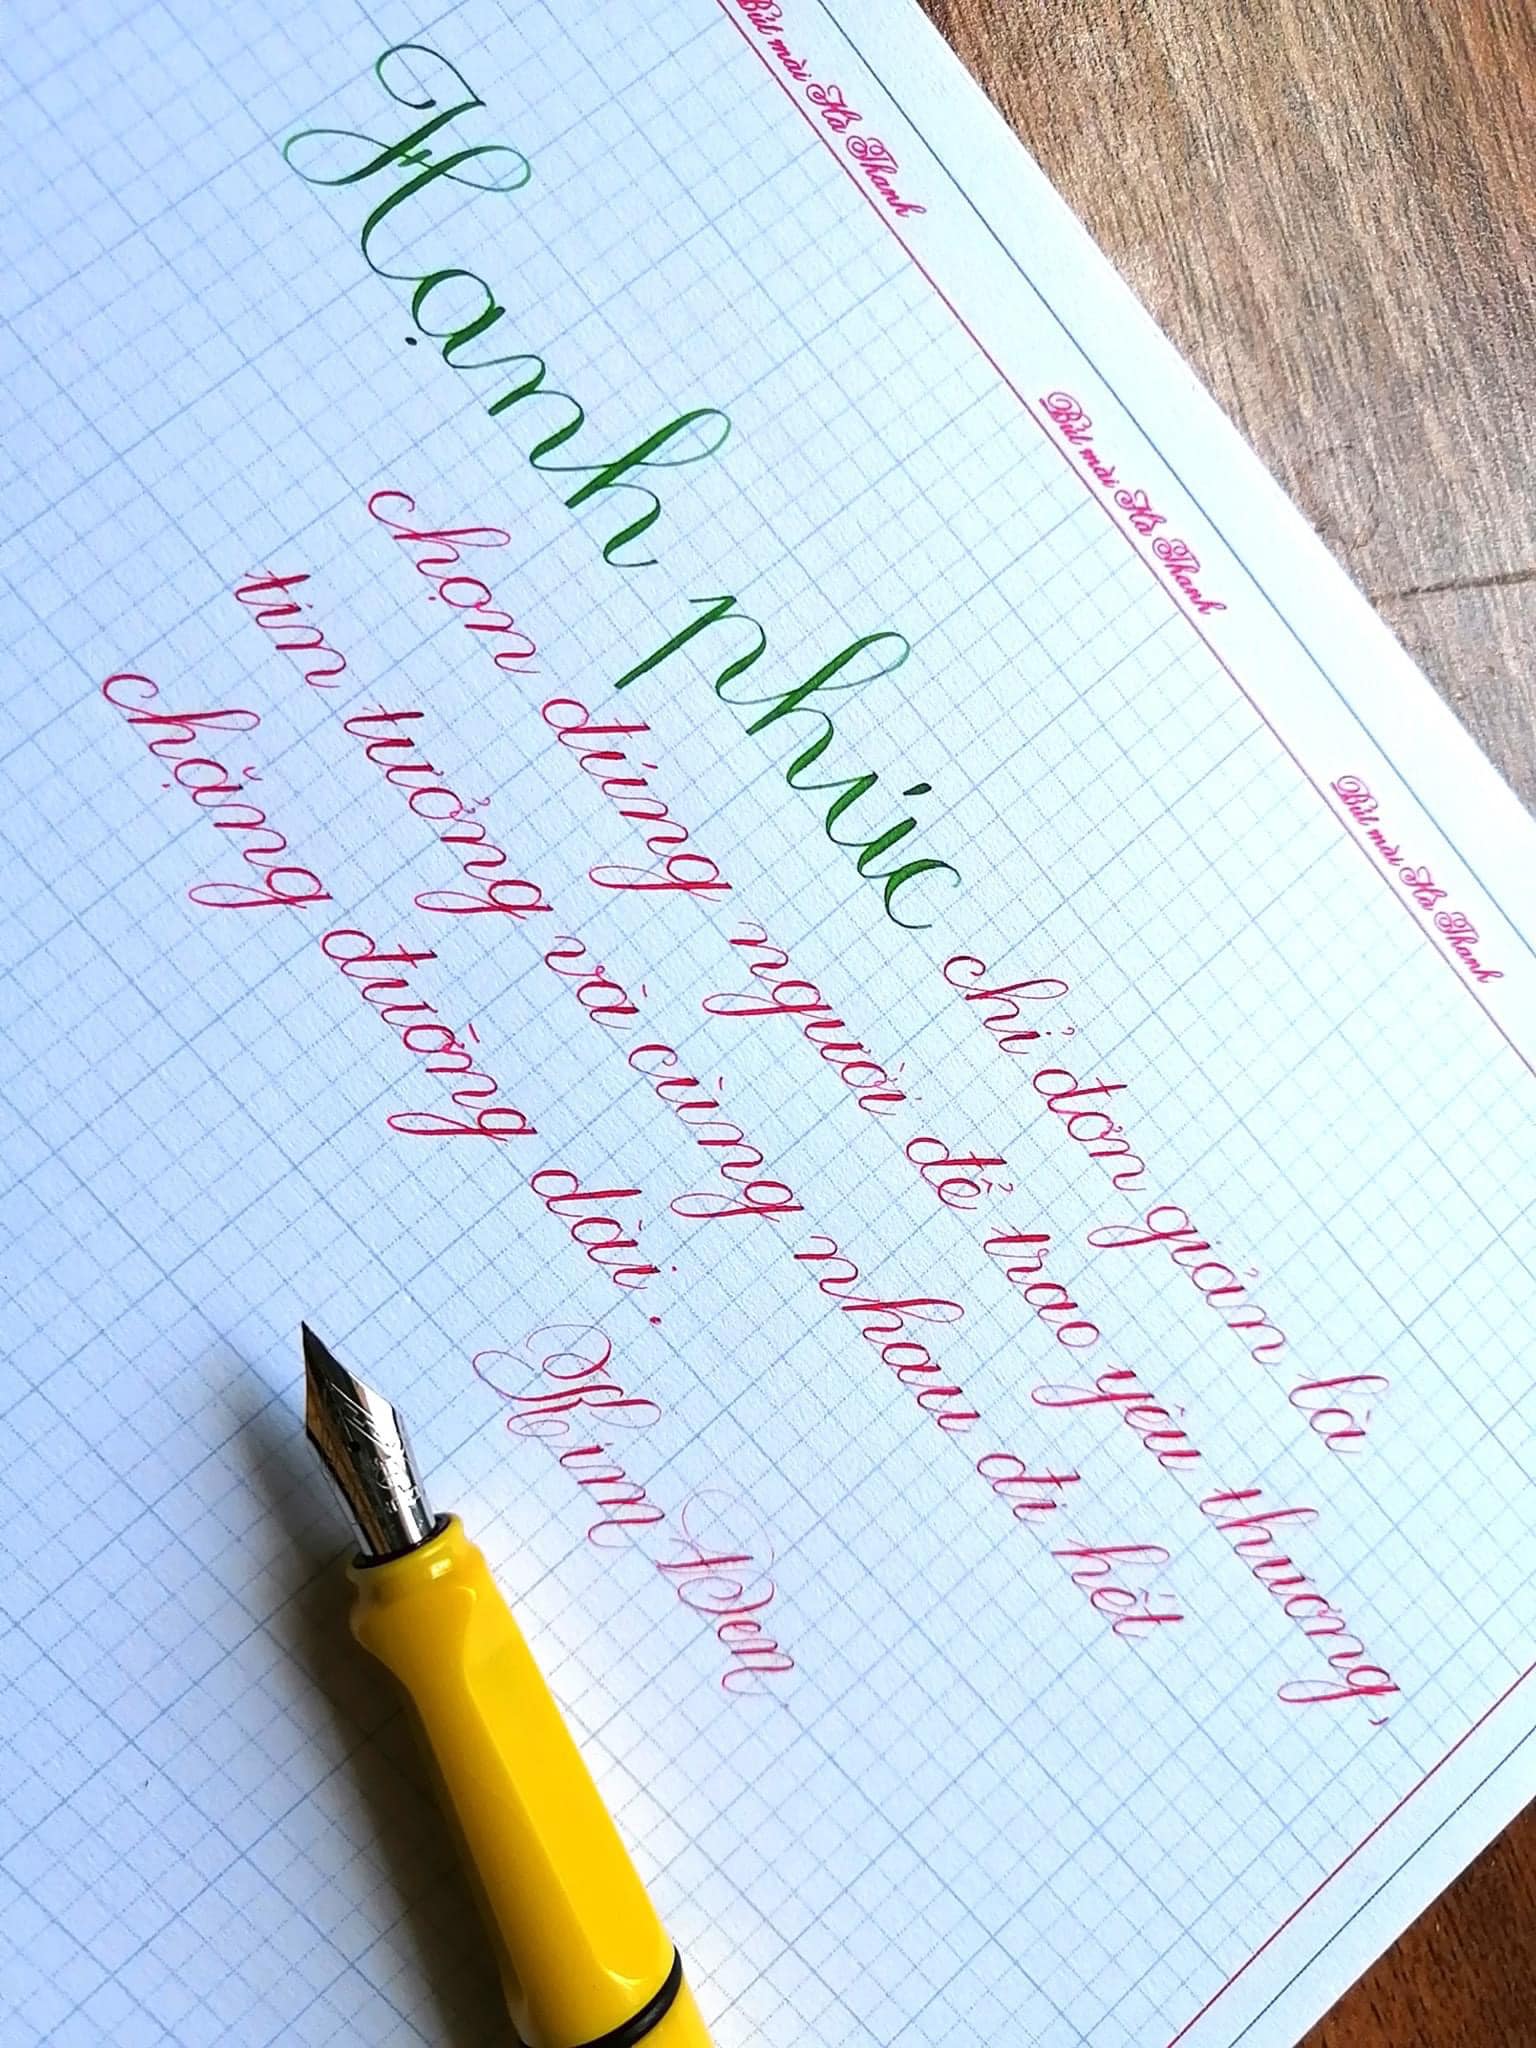 Bút mài Hà Thanh
Bút mài Hà Thanh
Bút mài Hà Thanh
Hạnh phúc chỉ đơn giản là
chọn đúng người để trao yêu thương,
tin tưởng và cùng nhau đi hết
chặng đường dài.
Kim Đen